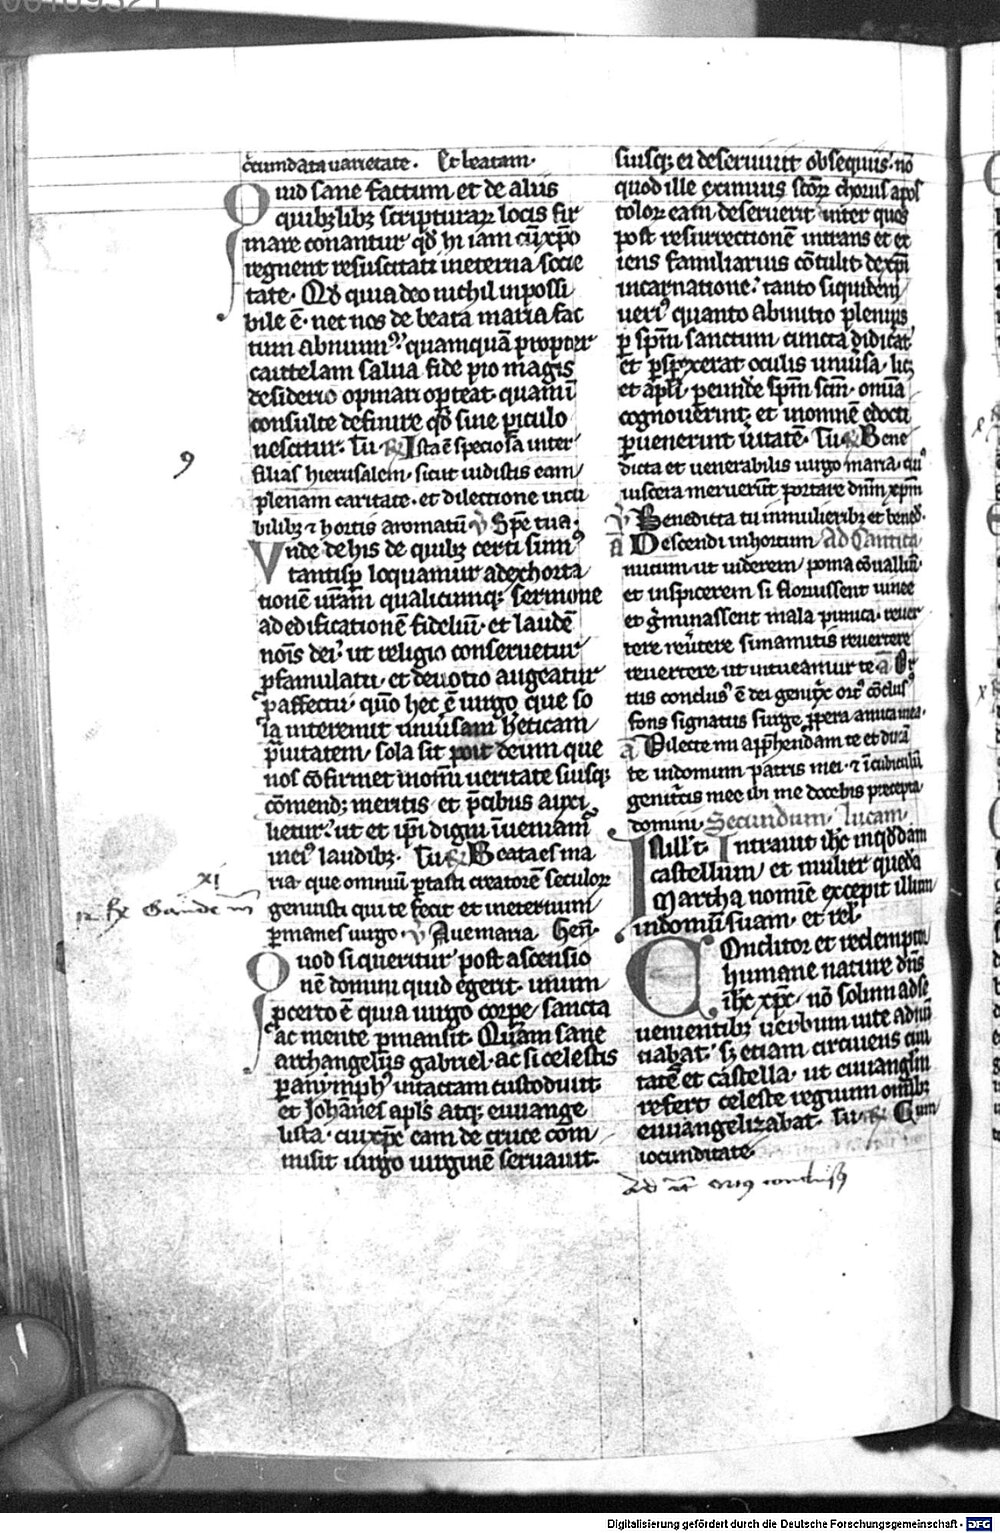 cc̄undata uarietate. Et beatam.
Quid sane factum et de aliis
quibꝫlibꝫ scripturaꝝ locis fir
mare conantur qd̄ hi iam cū xp̄o
regnent resuscitati in eterna socie
tate. Qd̄ quia deo nichil inpossi
bile ē. nec nos de beata maria fac
tum abnuimꝰ quamquā propter
cautelam salua fide pio magis
desiderio opinari oꝑteat quam ī
consulte definire qd̄ sine ꝑiculo
nescitur. Tu. ℟ Ista ē speciosa inter
filias hierusalem. sicut uidistis eam
plenam caritate. et dilectione in cu
bilibꝫ ⁊ hortis aromatū ℣ Spē tua.
Vnde de his de quibꝫ certi sumꝰ
tantisꝑ loquamur ad exhorta
tionē ur̄am qualicumqꝫ sermone
ad edificationē fidelium. et laudē
nōis dei. ut religio conseruetur
ꝑ famulatū. et deuotio augeatur
ꝑ affectū. quō hec ē uirgo que so
la interemit uniūsam h̄eticam
prauitatem. sola sit post deum que
nos cōfirmet in om̄i ueritate suisqꝫ
cōmendꝫ meritis et p̄cibus auxi
lietur. ut et ip̄i digni īueniam̄
in eiꝰ laudibꝫ. Tu. ℟ Beata es ma
ria que omnium portasti creatorē seculoꝝ
genuisti qui te fecit et in eternum
ꝑmanes uirgo ℣ Aue maria Gen̄.
Quod si queritur post ascensio
nē domini quid egerit. unum
ꝓ certo ē quia uirgo corꝑe. sancta
ac mente ꝑmansit. Quam sane
archangelus gabriel. ac si celestis
paranymphꝰ intactam custodiuit
et Johānes apl̄s atqꝫ euuange
lista. cui xp̄c eam de cruce com
misit uirgo uirginē seruauit.
9
XI
℟ Gaude m̄
suisqꝫ ei deseruiuit obsequiis. nō
quod ille eximius sc̄oꝝ chorus apos
toloꝝ eam deseruerit inter quos
post resurrectionē intrans et ex
iens familiarius cōtulit de xp̄i
incarnatione. tanto siquidem
ueriꝰ quanto ab initio plenius
ꝑ sp̄m sanctum cuncta didicat
et ꝑspexerat oculis uniūsa. licꝫ
et apl̄i ꝑeunde sp̄m sc̄m. omīa
cognouerint. et in omnē edocti
ꝑuenerint ūitatē. Tu. ℟ Bene
dicta et uenerabilis uirgo maria. cuiꝰ
uiscera meruerūt portare dn̄m xp̄m
℣ Benedicta tu in mulieribꝫ et bened.
a Descendi in hortum Ad Cantica
nucum ut uiderem poma cōuallium
et inspicerem si floruissent uinee
et ḡminassent mala punica. reuer
tere reūtere sunamitis reuertere
reuertere ut intueamur te. a Or
tus conclusꝰ ē dei genitrix ortꝰ cōclusꝰ
fons signatus surge ꝓpera amica mea.
a Dilecte mi app̄hendam te et ducā
te in domum patris mei. ⁊ ī cubiculū
genitcis mee ibi me docebis precepta
domini. Secundum lucam.
In ill̄ t. Intrauit ih̄c in qd̄dam
castellum et mulier queda
Martha nomīe excepit illum
in domū suam. et rel̄.
Conditor et redemptor
humane nature dn̄s
ih̄c xp̄c. nō solum ad se
uenientibꝫ uerbum uite adnū
tiabat. sꝫ etiam circuiens ciui
tates et castella. ut euuangl̄m
refert celeste regnum om̄ibꝫ
euuangelizabat. Tu. ℟ Cum
iocunditate.
ad ortus conclusꝰ
Digitalisierung gefördert durch die Deutsche Forschungsgemeinschaft - DFG